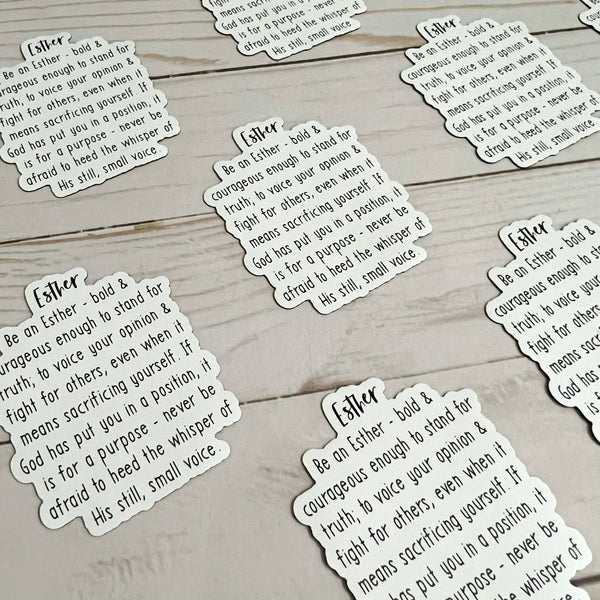 God has put you in a position, it
is for a purpose - never be
afraid to heed the whisper of
His still, small voice.
Esther
Be an Esther - bold &
courageous enough to stand for
truth, to voice your opinion &
fight for others, even when it
means sacrificing yourself. If
God has put you in a position, it
is for a purpose - never be
afraid to heed the whisper of
His still, small voice.
Esther
Be an Esther - bold &
courageous enough to stand for
truth, to voice your opinion &
fight for others, even when it
means sacrificing yourself. If
God has put you in a position, it
is for a purpose - never be
afraid to heed the whisper of
His still, small voice.
Esther
Be an Esther - bold &
courageous enough to stand for
truth, to voice your opinion &
fight for others, even when it
means sacrificing yourself. If
God has put you in a position, it
is for a purpose - never be
afraid to heed the whisper of
His still, small voice.
Esther
Be an Esther - bold &
courageous enough to stand for
truth, to voice your opinion &
fight for others, even when it
means sacrificing yourself. If
God has put you in a position, it
is for a purpose - never be
afraid to heed the whisper of
His still, small voice.
Esther
Be an Esther - b
courageous enough
truth, to voice
fight for other
means sacrif
God has put
is for
Esther
Be an Esther - bold &
courageous enough to stand for
truth, to voice your opinion &
fight for others, even when it
means sacrificing yourself. If
has put you in a position, it
a purpose - never be
to heed the whisper of